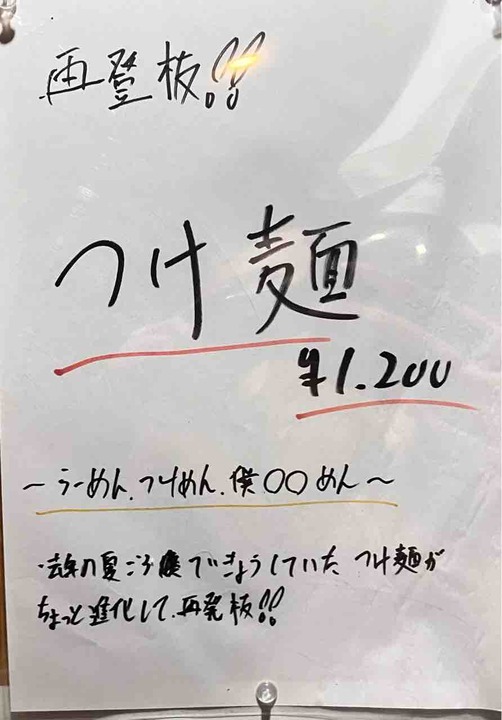 再登板!!
つけ麺
¥1.200
〜らーめん、つけめん、僕〇〇めん〜
・去年の夏ごろ迄ていきょうしていた つけ麺が
ちょっと進化して、再発板!!